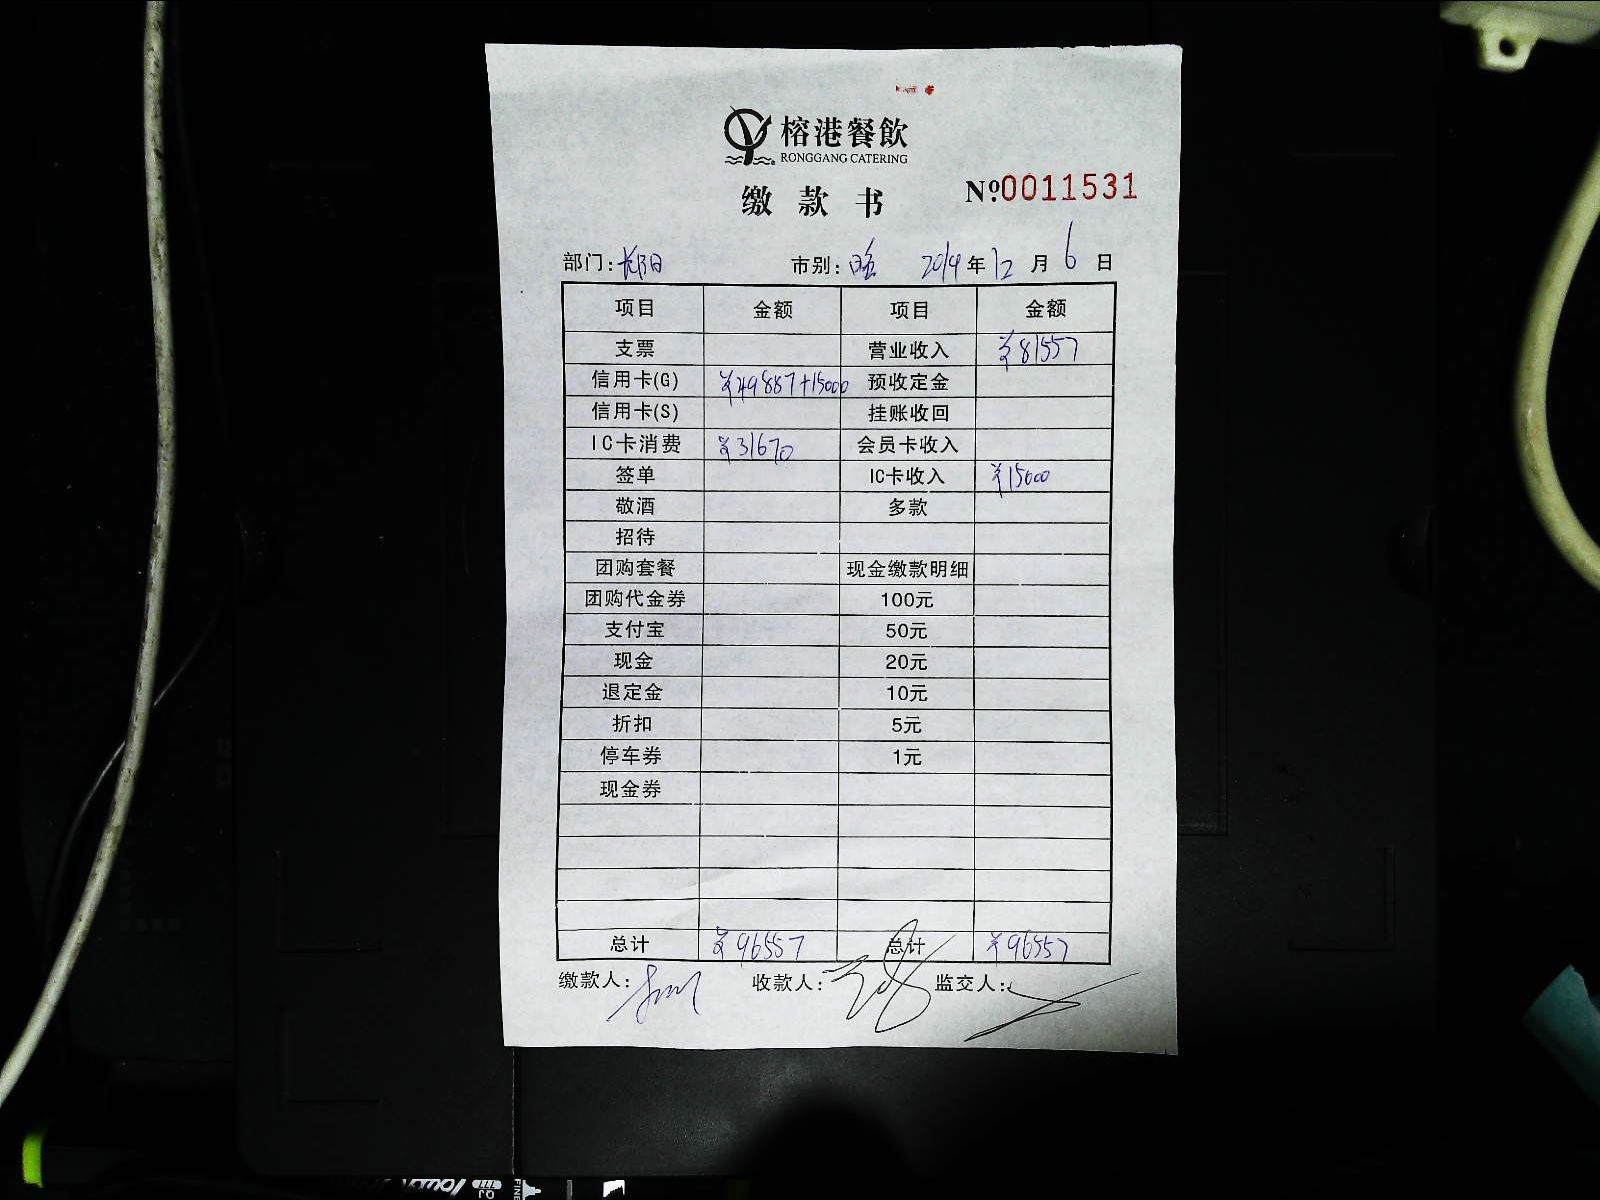 榕港餐飲
RONGGANG CATERING
缴款书 Nº0011531
部门: 市别: 2014年12月6日
项目 金额 项目 金额
支票 营业收入 ¥81557
信用卡(G) ¥49887+15000 预收定金
信用卡(S) 挂账收回
IC卡消费 ¥31670 会员卡收入
签单 IC卡收入 ¥15000
敬酒 多款
招待
团购套餐 现金缴款明细
团购代金券 100元
支付宝 50元
现金 20元
退定金 10元
折扣 5元
停车券 1元
现金券
总计 ¥96557 总计 ¥96557
缴款人: 收款人: 监交人: